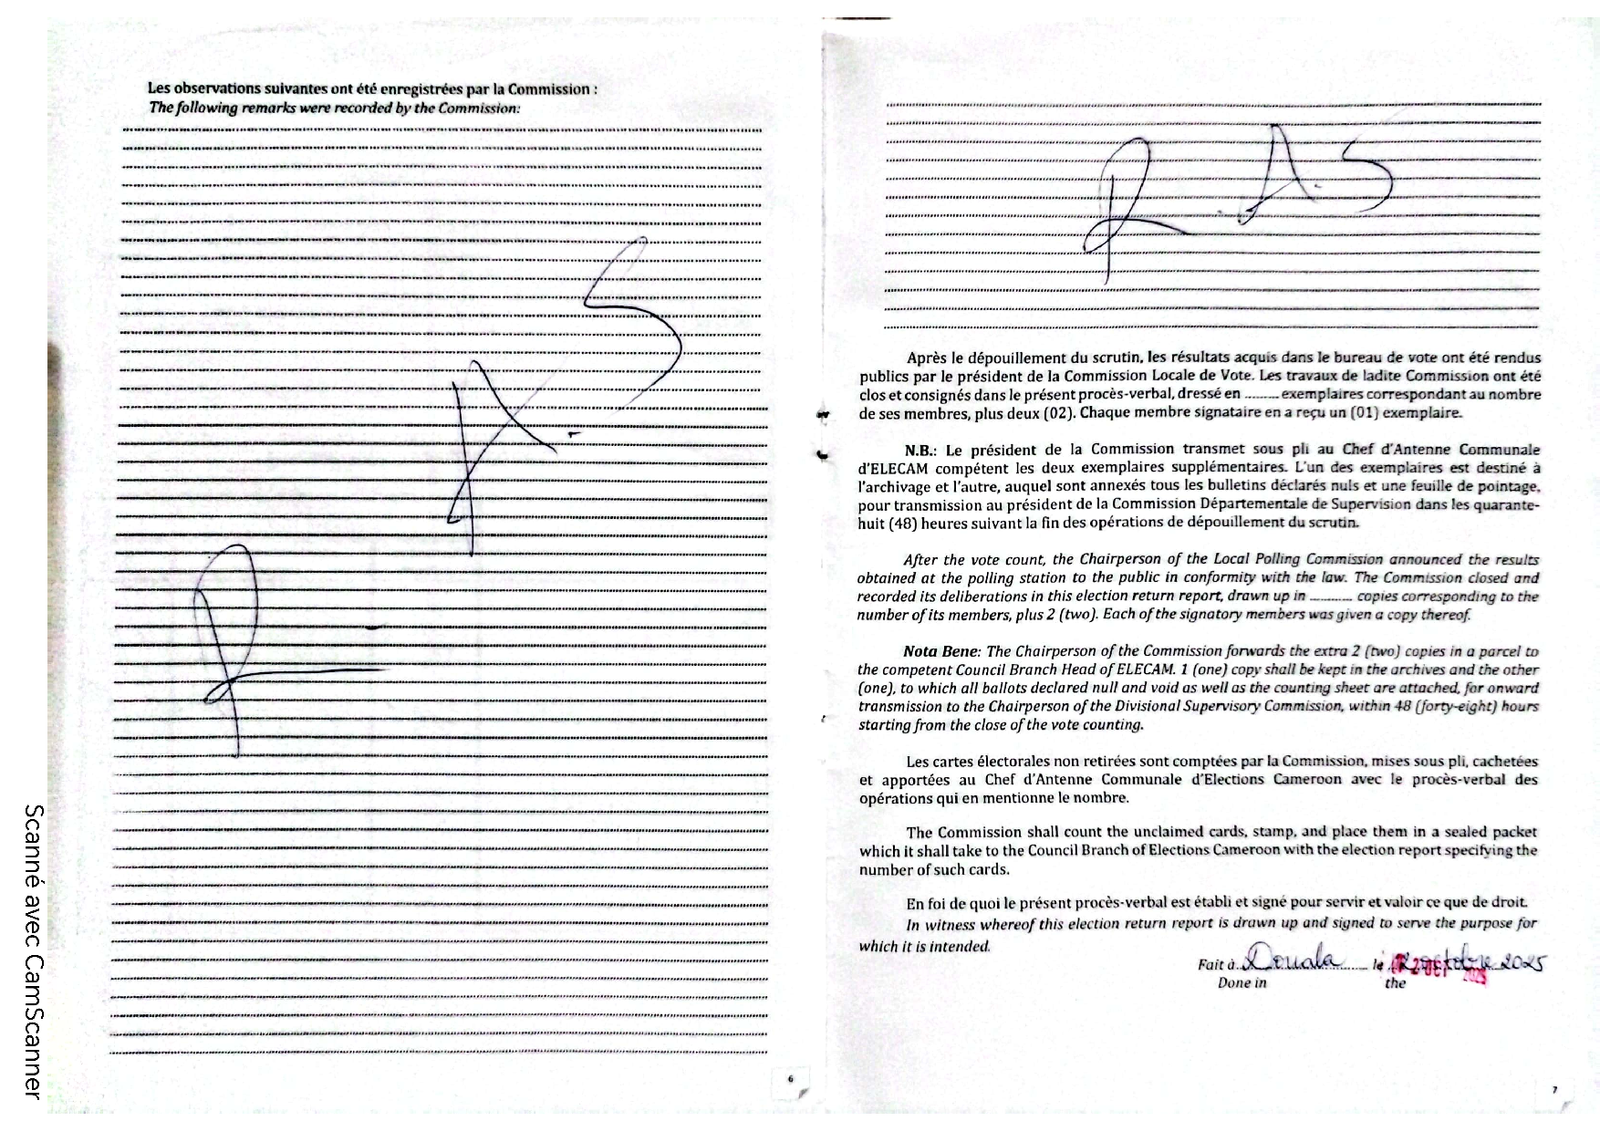 Les observations suivantes ont été enregistrées par la Commission :
The following remarks were recorded by the Commission:
R A S
6
R A S
Après le dépouillement du scrutin, les résultats acquis dans le bureau de vote ont été rendus
publics par le président de la Commission Locale de Vote. Les travaux de ladite Commission ont été
clos et consignés dans le présent procès-verbal, dressé en .......... exemplaires correspondant au nombre
de ses membres, plus deux (02). Chaque membre signataire en a reçu un (01) exemplaire.
N.B.: Le président de la Commission transmet sous pli au Chef d'Antenne Communale
d'ELECAM compétent les deux exemplaires supplémentaires. L'un des exemplaires est destiné à
l'archivage et l'autre, auquel sont annexés tous les bulletins déclarés nuls et une feuille de pointage,
pour transmission au président de la Commission Départementale de Supervision dans les quarante-
huit (48) heures suivant la fin des opérations de dépouillement du scrutin.
After the vote count, the Chairperson of the Local Polling Commission announced the results
obtained at the polling station to the public in conformity with the law. The Commission closed and
recorded its deliberations in this election return report, drawn up in ............ copies corresponding to the
number of its members, plus 2 (two). Each of the signatory members was given a copy thereof.
Nota Bene: The Chairperson of the Commission forwards the extra 2 (two) copies in a parcel to
the competent Council Branch Head of ELECAM. 1 (one) copy shall be kept in the archives and the other
(one), to which all ballots declared null and void as well as the counting sheet are attached, for onward
transmission to the Chairperson of the Divisional Supervisory Commission, within 48 (forty-eight) hours
starting from the close of the vote counting.
Les cartes électorales non retirées sont comptées par la Commission, mises sous pli, cachetées
et apportées au Chef d'Antenne Communale d'Elections Cameroon avec le procès-verbal des
opérations qui en mentionne le nombre.
The Commission shall count the unclaimed cards, stamp, and place them in a sealed packet
which it shall take to the Council Branch of Elections Cameroon with the election report specifying the
number of such cards.
En foi de quoi le présent procès-verbal est établi et signé pour servir et valoir ce que de droit.
In witness whereof this election return report is drawn up and signed to serve the purpose for
which it is intended.
Fait à Douala le 12 octobre 2025
Done in the
7
Scanné avec CamScanner